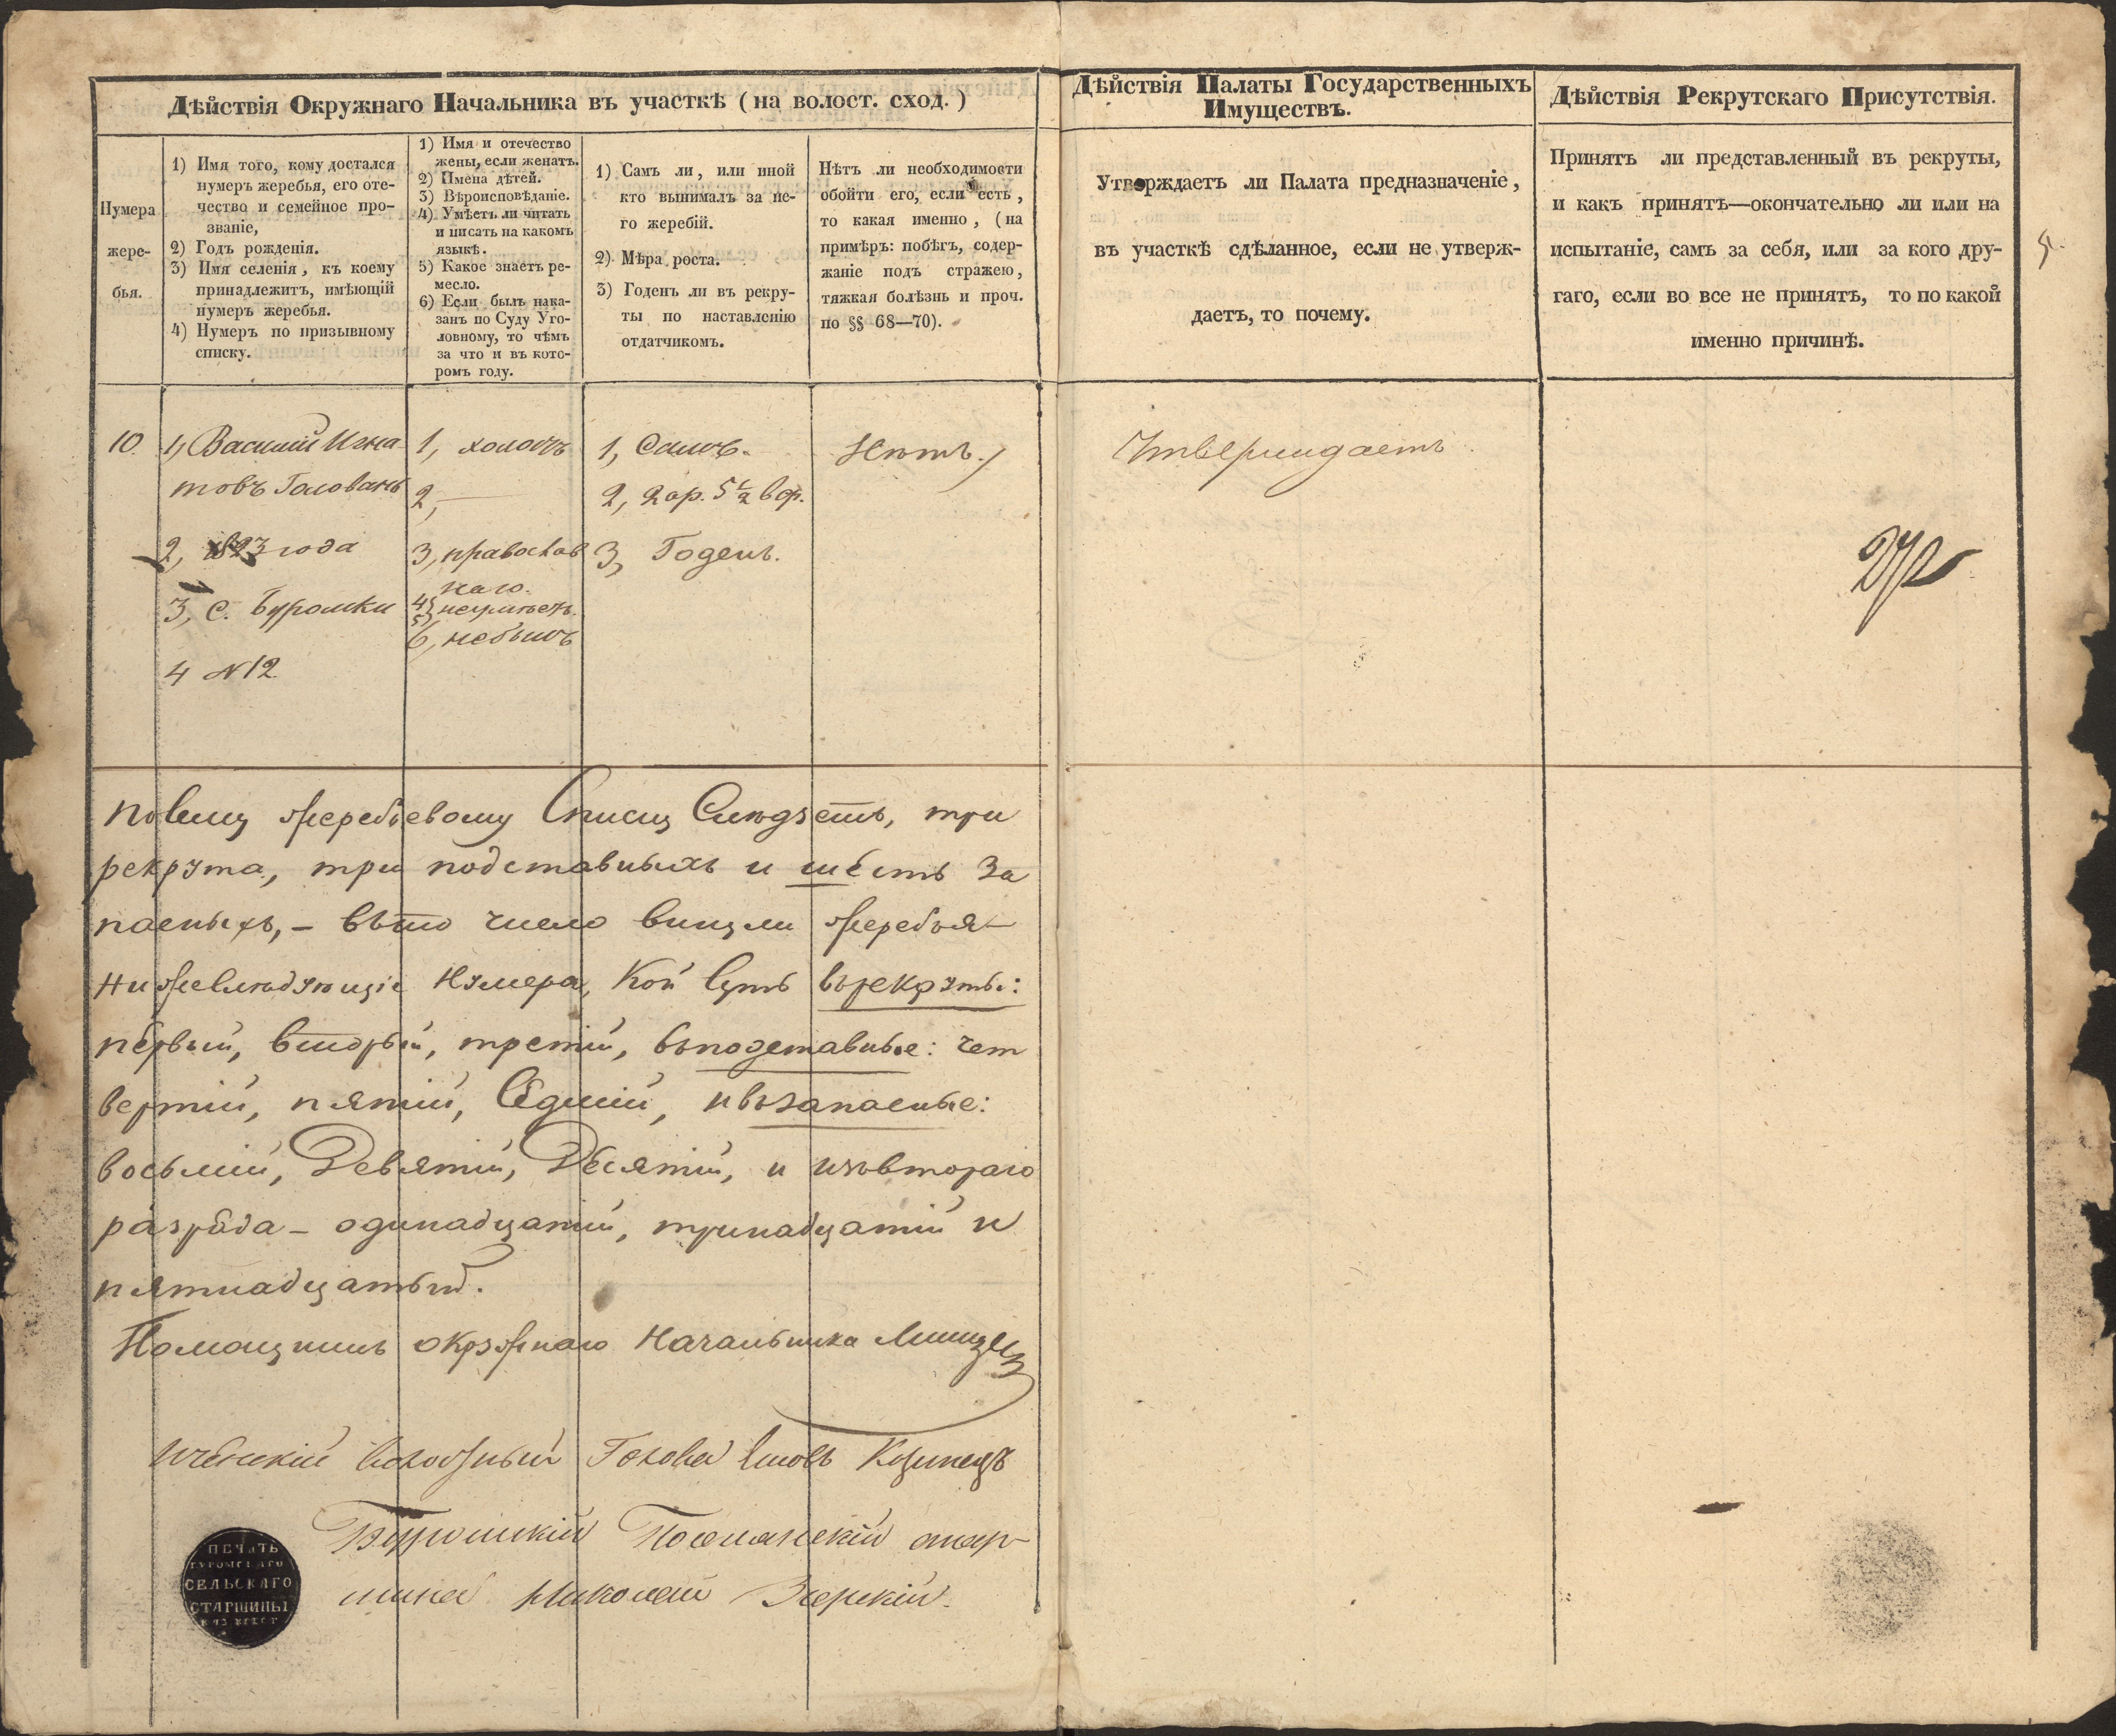 Дѣйствія Окружнаго Начальника въ участкѣ ( на волост. сход. )
Нумера
жере-
бья.
1) Имя того, кому достался
нумеръ жеребья, его оте-
чество и семейное про-
званіе,
2) Годъ рожденія.
3) Имя селенія, къ коему
принадлежитъ, имѣющій
нумеръ жеребья.
4) Нумеръ по призывному
списку.
1) Имя и отечество
жены, если женатъ.
2) Имена дѣтей.
3) Вѣроисповѣданіе.
4) Умѣетъ ли читать
и писать на какомъ
языкѣ.
5) Какое знаетъ ре-
месло.
6) Если былъ нака-
занъ по Суду Уго-
ловному, то чѣмъ
за что и въ кото-
ромъ году.
1) Самъ ли, или иной
кто вынималъ за не-
го жеребій.
2) Мѣра роста.
3) Годенъ ли въ рекру-
ты по наставленію
отдатчикомъ.
Нѣтъ ли необходимости
обойти его, если есть,
то какая именно, (на
примѣръ: побѣгъ, содер-
жаніе подъ стражею,
тяжкая болѣзнь и проч.
по §§ 68—70).
Дѣйствія Палаты Государственныхъ
Имуществъ.
Утверждаетъ ли Палата предназначеніе,
въ участкѣ сдѣланное, если не утверж-
даетъ, то почему.
Дѣйствія Рекрутскаго Присутствія.
Принятъ ли представленный въ рекруты,
и какъ принятъ—окончательно ли или на
испытаніе, самъ за себя, или за кого дру-
гаго, если во все не принятъ, то по какой
именно причинѣ.
10.
1, Василій Игна
товъ Головань
2, 1823 года
3, С. Буромки
4 N 12
1, холостъ
2, —
3, православ
наго.
4}
5} неумѣетъ.
6, небылъ
1, Самъ.
2, 2 ар. 5 1/2 вер.
3, Годенъ.
Нѣтъ.
Утверждаетъ
посему жеребьевому Списку Слюдзетъ, три
рекрута, три подставныхъ и шесть за
пасныхъ, – въто число вищли жеребья –
нижеслюдующіе нумера, кои суть върекруты:
первый, вторый, третій, въподставные: чет
вертій, пятій, Седмій, ивъзапасные:
восьмій, Девятій, Десятій, и изъвтораго
разряда – одинадцатій, тринадцатій и
пятнадцатый.
Помощникъ окружнаго Начальника
Голова
Буромскій старшина Николай
ПЕЧАТЬ
БУРОМСКАГО
СЕЛЬСКАГО
СТАРШИНЫ